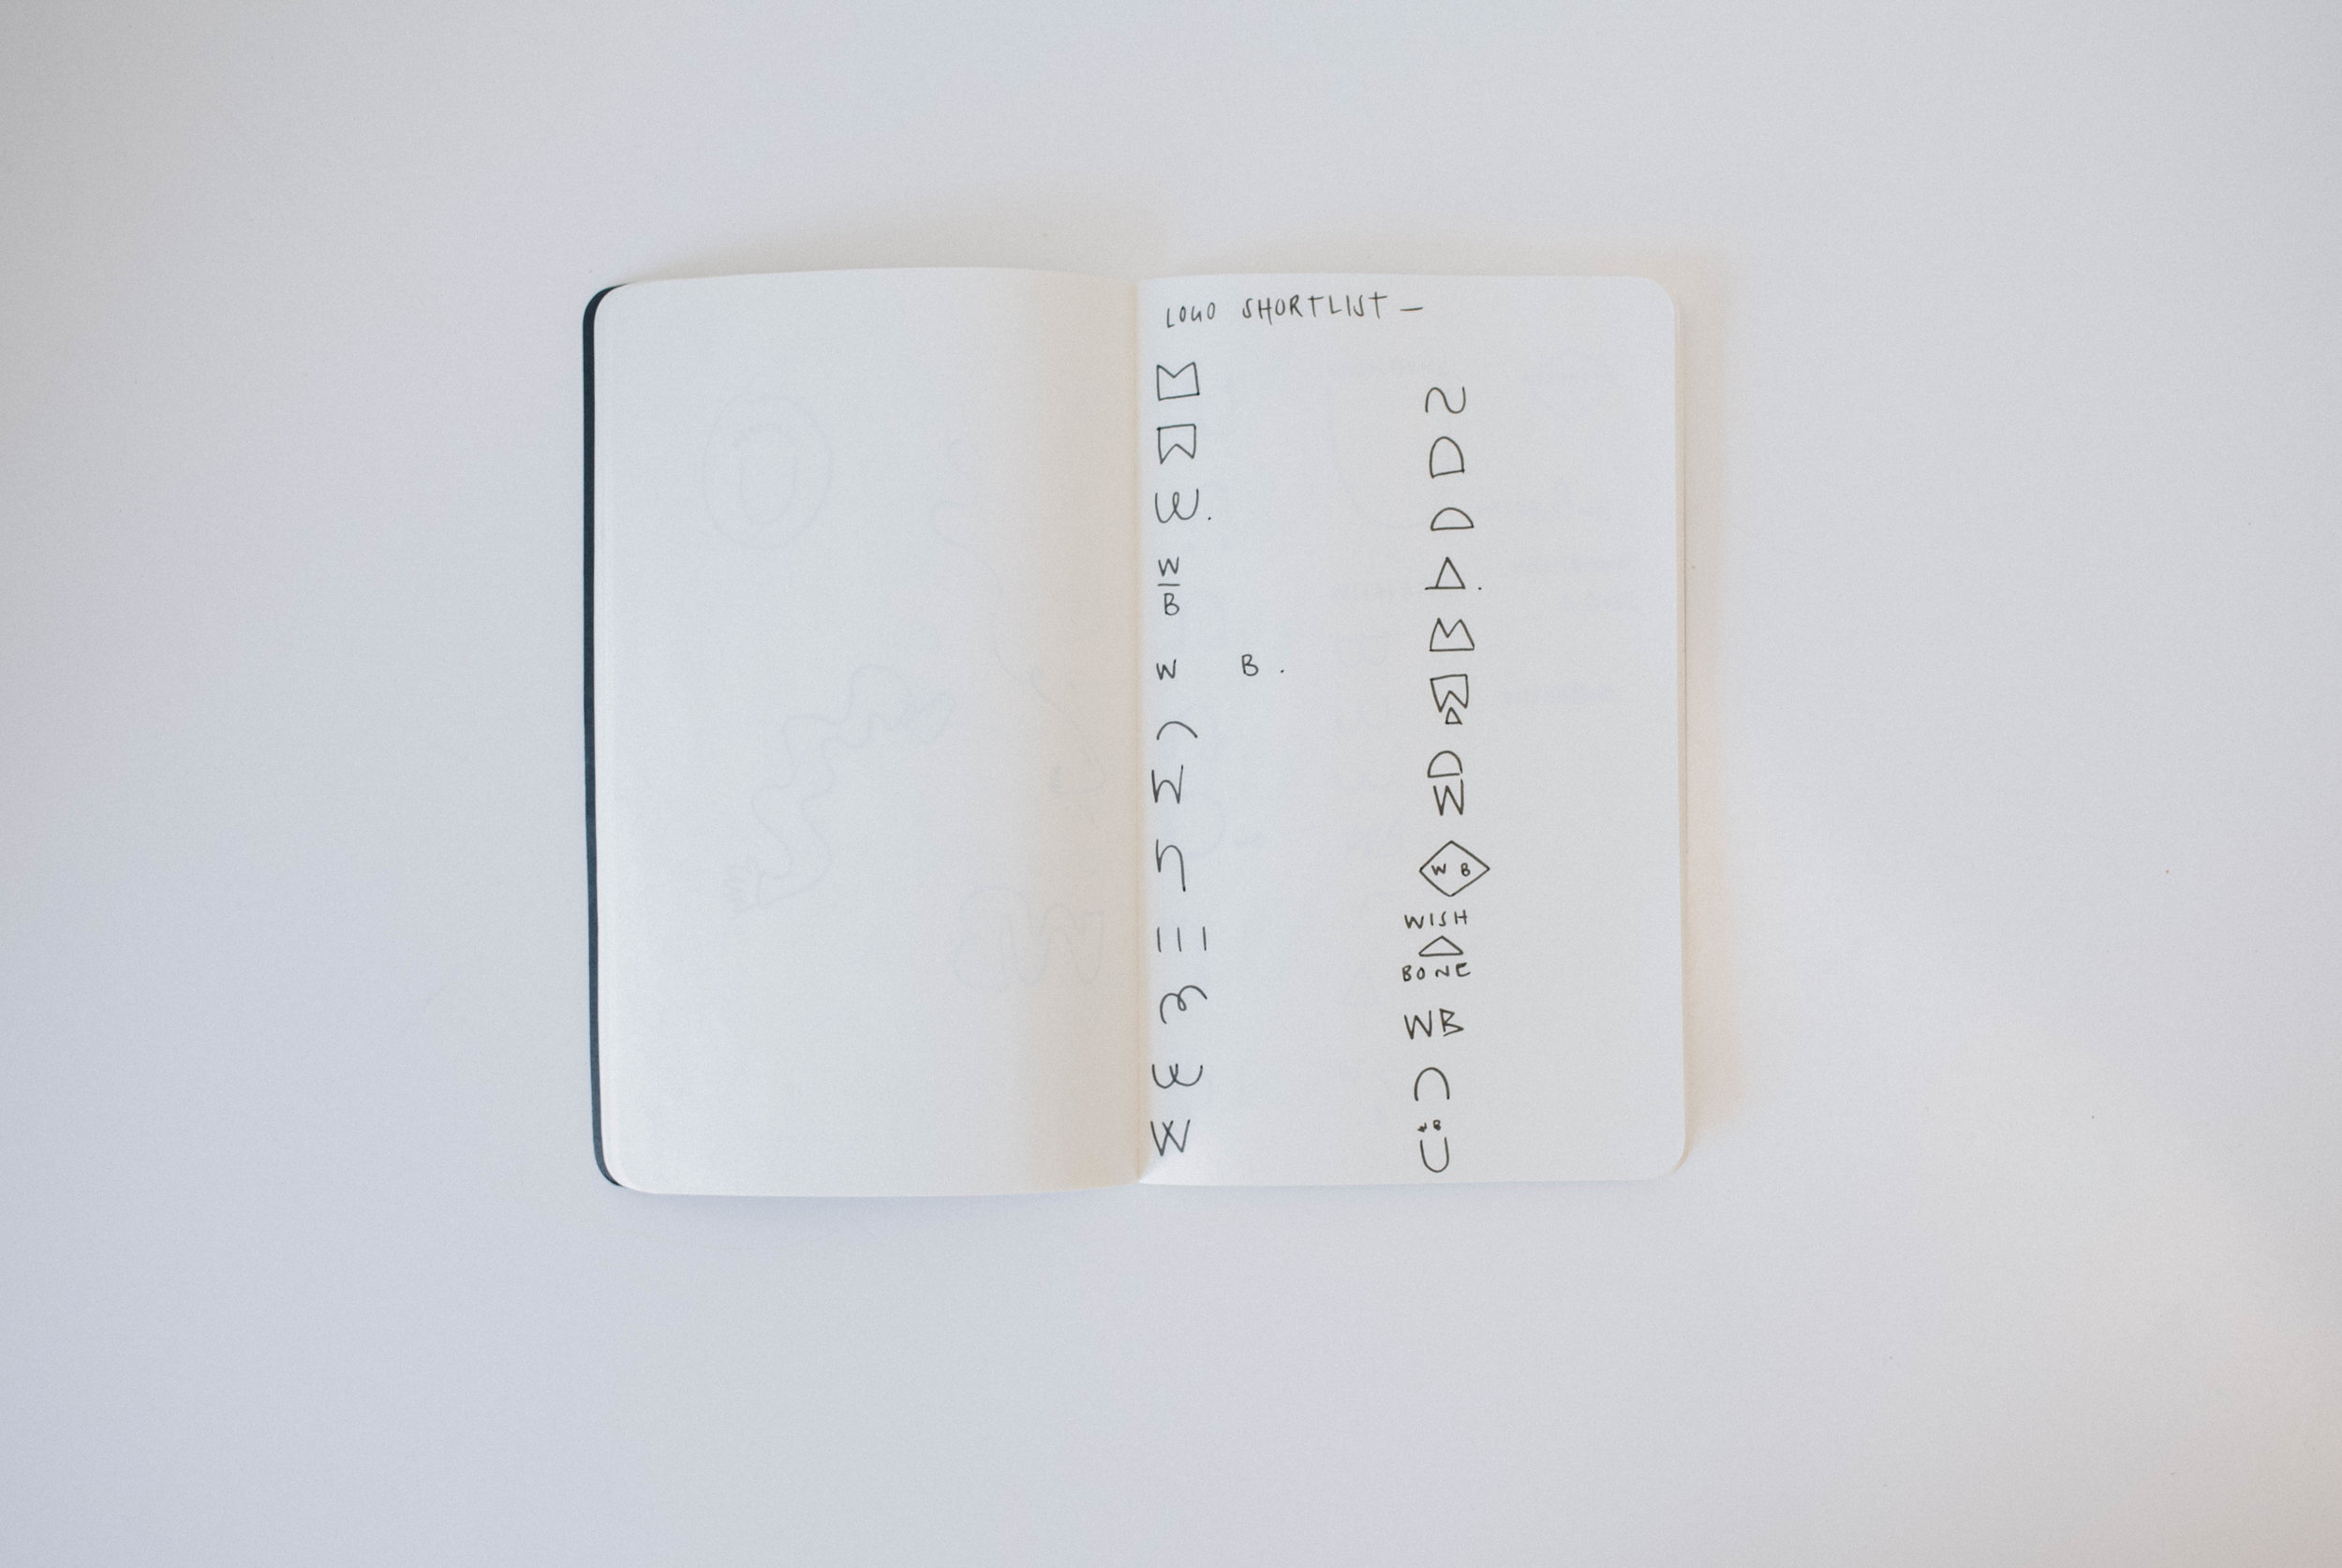 LOGO SHORTLIST —
W
B
W B.
W B
WISH
BONE
WB
W B